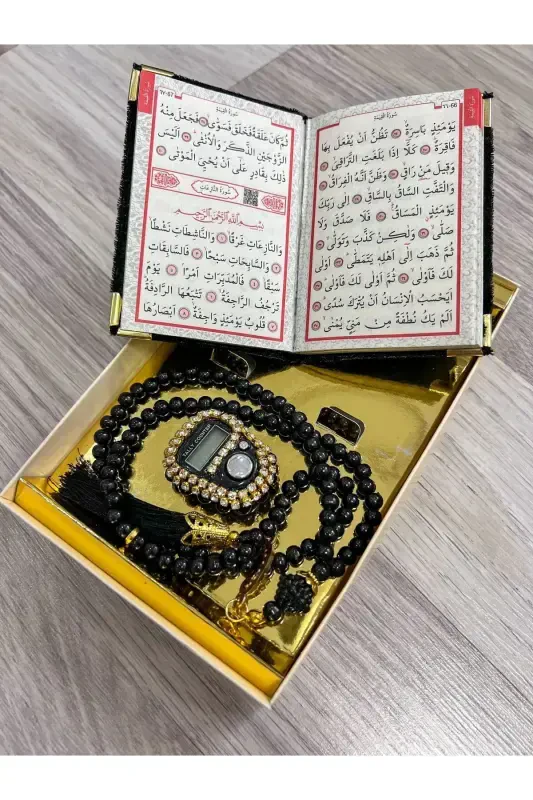 سُورَةُ الْقِيٰمَةِ
66
يَوْمَئِذٍ بَاسِرَةٌ تَظُنُّ اَنْ يُفْعَلَ بِهَا
فَاقِرَةٌ كَلَّٓا اِذَا بَلَغَتِ التَّرَاقِيَ
وَقٖيلَ مَنْ رَاقٍ وَظَنَّ اَنَّهُ الْفِرَاقُ
وَالْتَفَّتِ السَّاقُ بِالسَّاقِ اِلٰى رَبِّكَ
يَوْمَئِذٍ الْمَسَاقُ فَلَا صَدَّقَ وَلَا
صَلّٰى وَلٰكِنْ كَذَّبَ وَتَوَلّٰى
ثُمَّ ذَهَبَ اِلٰٓى اَهْلِهٖ يَتَمَطّٰى اَوْلٰى
لَكَ فَاَوْلٰى ثُمَّ اَوْلٰى لَكَ فَاَوْلٰى
اَيَحْسَبُ الْاِنْسَانُ اَنْ يُتْرَكَ سُدًى
اَلَمْ يَكُ نُطْفَةً مِنْ مَنِيٍّ يُمْنٰى
سُورَةُ الْقِيٰمَةِ
67
ثُمَّ كَانَ عَلَقَةً فَخَلَقَ فَسَوّٰى فَجَعَلَ مِنْهُ
الزَّوْجَيْنِ الذَّكَرَ وَالْاُنْثٰى اَلَيْسَ
ذٰلِكَ بِقَادِرٍ عَلٰٓى اَنْ يُحْيِيَ الْمَوْتٰى
سُورَةُ النَّازِعَاتِ
بِسْمِ اللّٰهِ الرَّحْمٰنِ الرَّحٖيمِ
وَالنَّازِعَاتِ غَرْقًا وَالنَّاشِطَاتِ نَشْطًا
وَالسَّابِحَاتِ سَبْحًا فَالسَّابِقَاتِ
سَبْقًا فَالْمُدَبِّرَاتِ اَمْرًا يَوْمَ
تَرْجُفُ الرَّاجِفَةُ تَتْبَعُهَا الرَّادِفَةُ
قُلُوبٌ يَوْمَئِذٍ وَاجِفَةٌ اَبْصَارُهَا
TALLY COUNTER